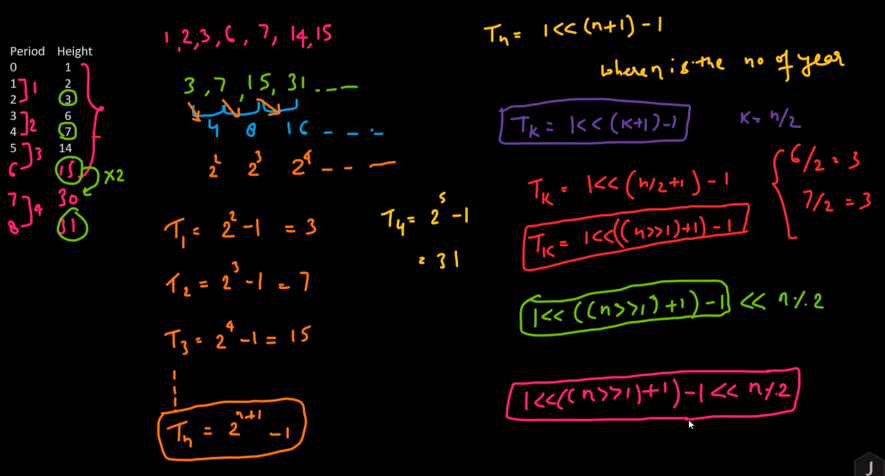 Period Height
0 1
1 2
2 3
3 6
4 7
5 14
6 15
7 30
8 31
]1
]2
]3
]4
x2
1,2,3,6,7,14,15
3,7,15,31---
4 8 16 ---
2² 2³ 2⁴ ---
T₁ = 2² -1 = 3
T₂ = 2³ -1 = 7
T₃ = 2⁴ -1 = 15
Tₙ = 2ⁿ⁺¹ -1
T₄ = 2⁵ -1
= 31
Tₙ = 1<<(n+1)-1
where n is the no of year
Tₖ = 1<<(k+1)-1 k = n/2
Tₖ = 1<<(n/2+1)-1
6/2 = 3
7/2 = 3
Tₖ = 1<<((n>>1)+1)-1
1<<((n>>1)+1)-1 << n%2
1<<((n>>1)+1)-1<<n%2
J